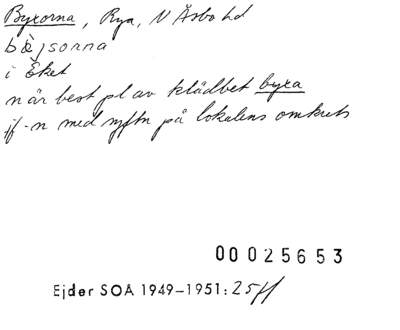 Byxorna, Rya, N Åsbo hd
bỳjsorna
i Eket
när best pl av klädbet byxa
jf -n med syftn på lokalens omkrets
00025653
Ejder SOÅ 1949-1951: 25ff